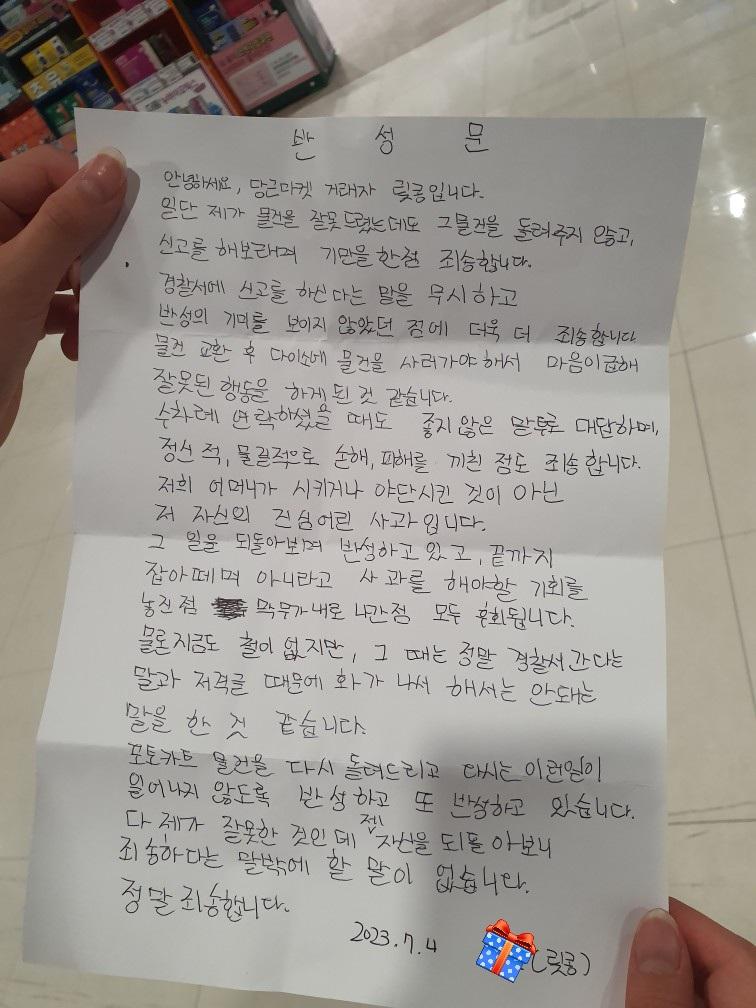 반 성 문
안녕하세요, 당근마켓 거래자 릦콩입니다.
일단 제가 물건을 잘못드렸는데도 그물건을 돌려주지 않고,
신고를 해보라며 기만을한점 죄송합니다.
경찰서에 신고를 하신다는 말을 무시하고
반성의 기미를 보이지 않았던 점에 더욱 더 죄송합니다
물건 교환 후 다이소에 물건을 사러가야해서 마음이급해
잘못된 행동을 하게된 것 같습니다.
수차례 연락하셨을 때도 좋지않은 말투로 대답하며,
정신적, 물질적으로 손해, 피해를 끼친 점도 죄송합니다.
저희 어머니가 시키거나 야단시킨 것이 아닌
저 자신의 진심어린 사과입니다.
그 일을 되돌아보며 반성하고있고, 끝까지
잡아떼며 아니라고 사과를 해야할 기회를
놓친점 막무가내로 나간점 모두 후회됩니다.
물로지금도 철이 없지만, 그 때는 정말 경찰서간다는
말과 저격글 때문에 화가 나서 해서는 안돼는
말을 한 것 같습니다.
포토카트 물건을 다시 돌려드리고 다시는 이런일이
일어나지 않도록 반성하고 또 반성하고 있습니다.
다 제가 잘못한 것인데 자신을 되돌아보니
죄송하다는 말밖에 할 말이 없습니다.
정말죄송합니다.
2023.7.4 (릦콩)